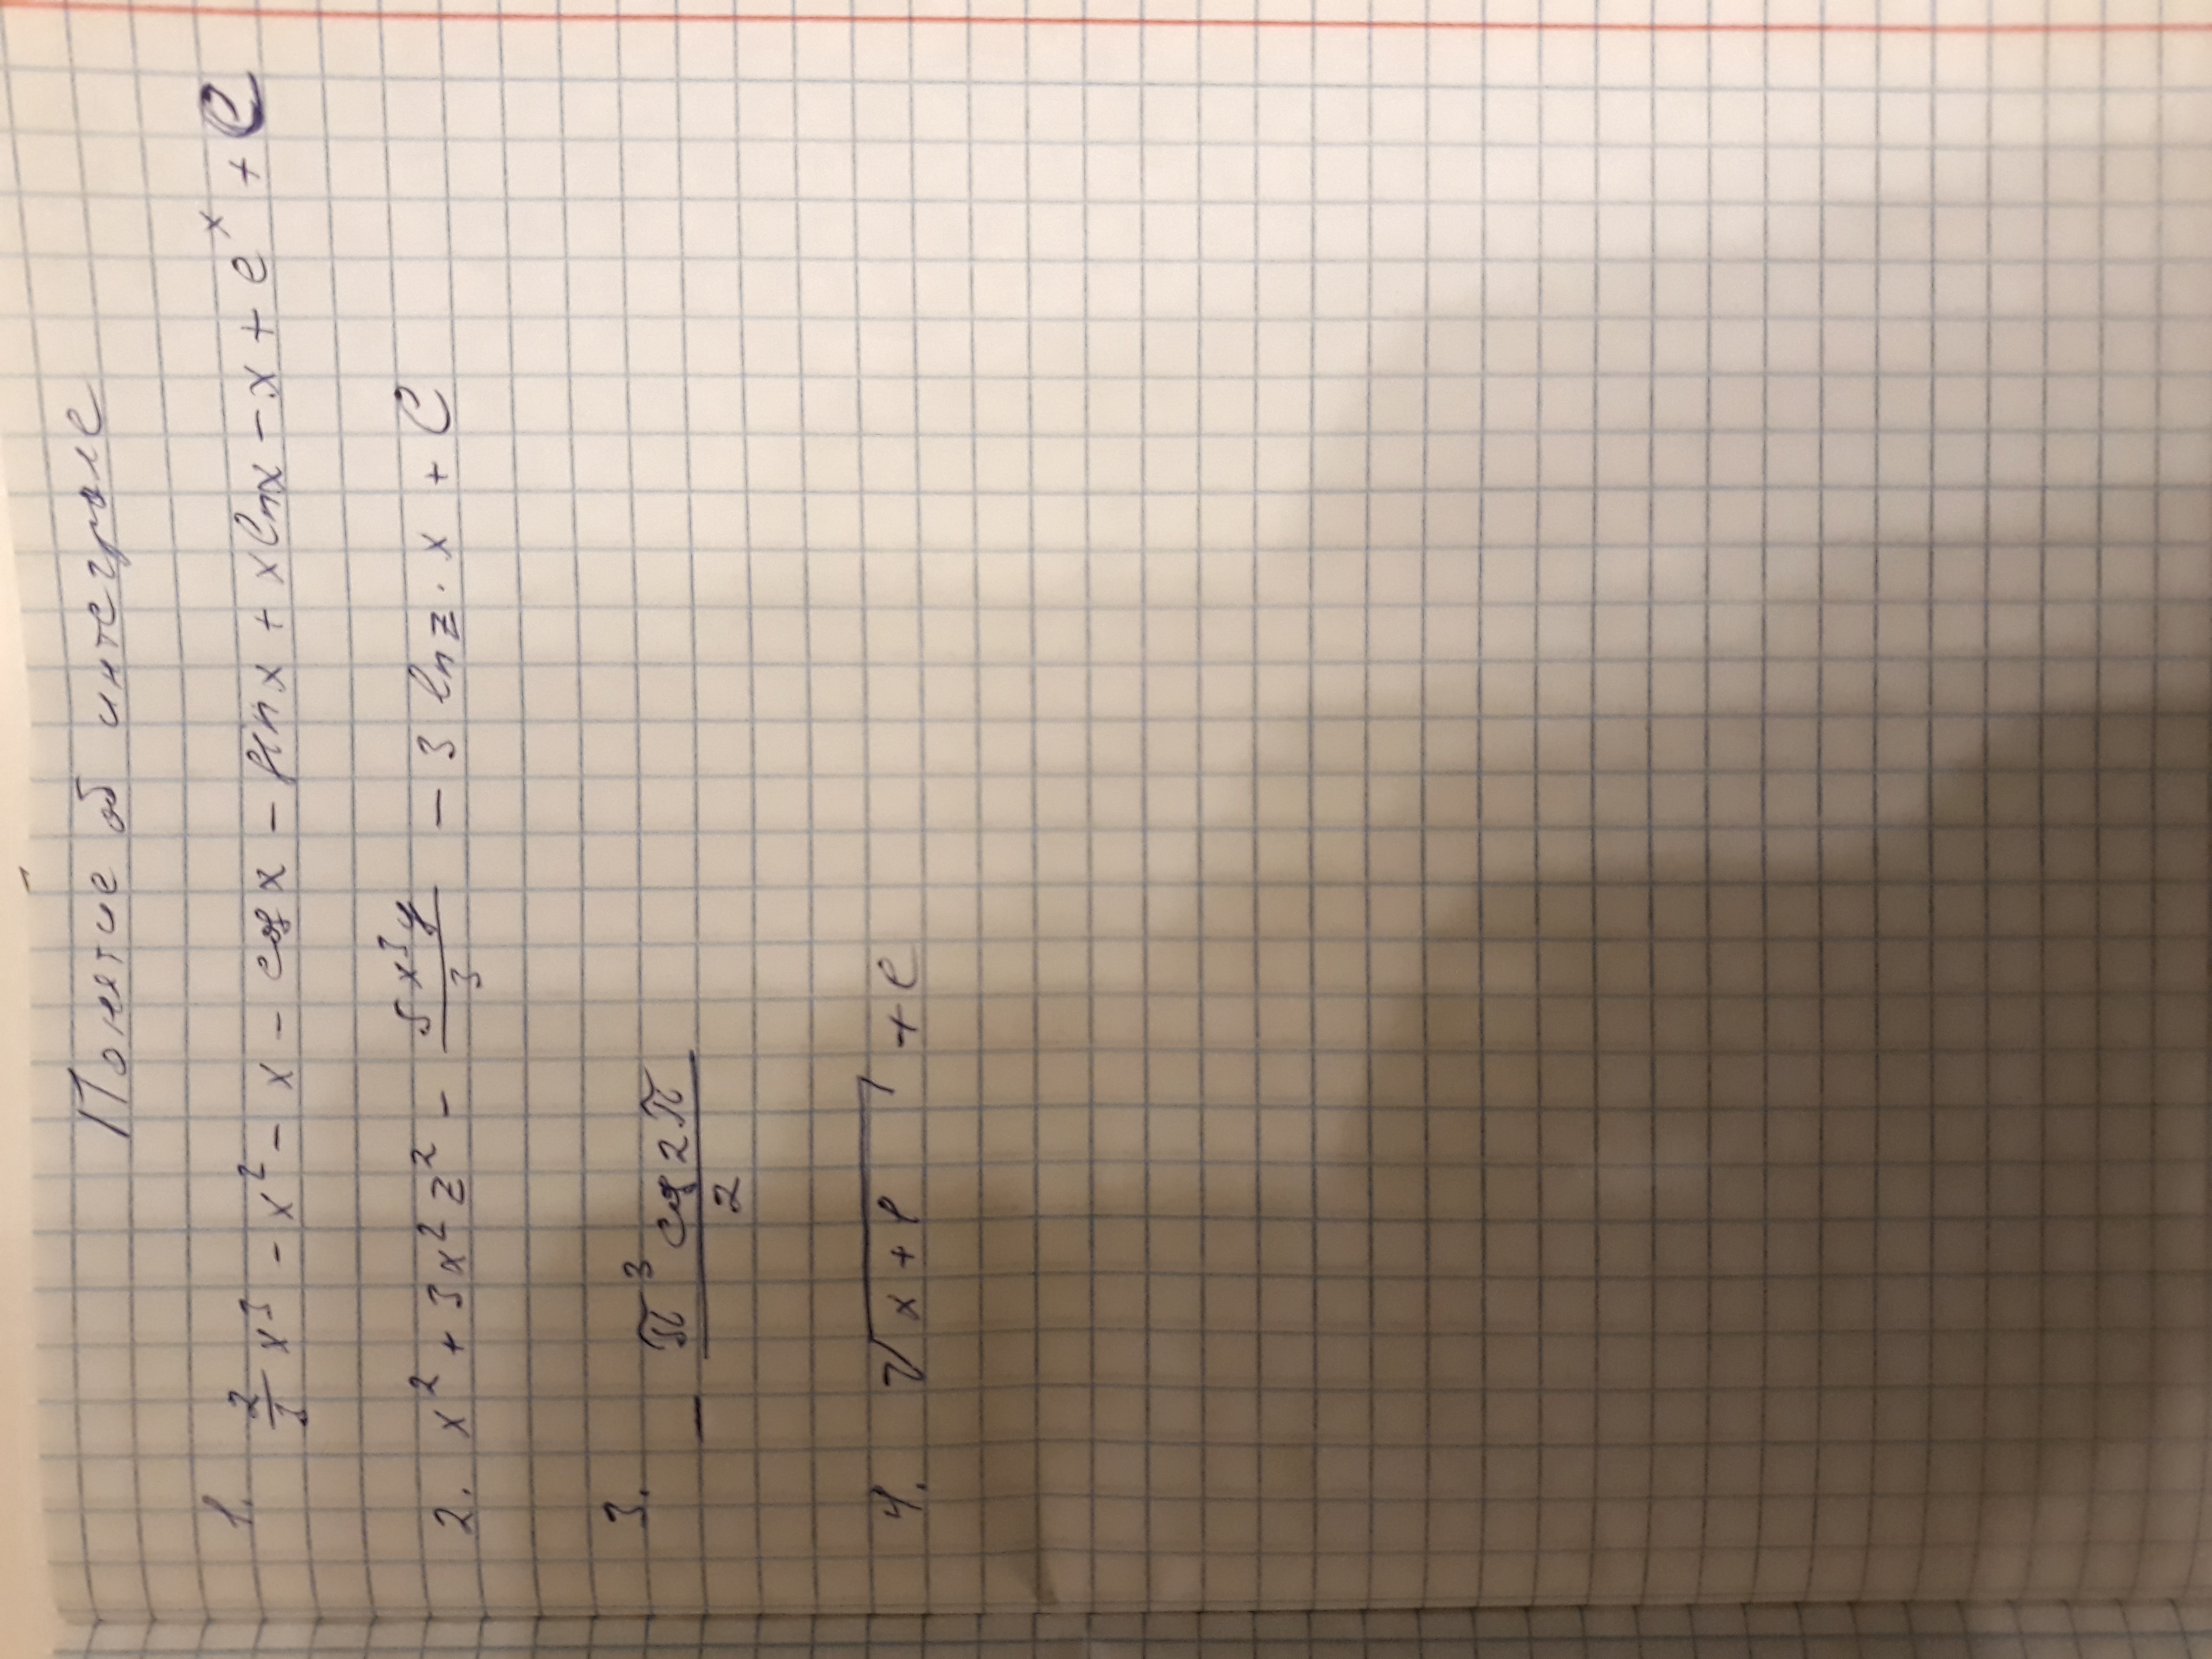 Понятие об интеграле
1. 2/3 x³ - x² - x - cos x - sin x + x ln x - x + eˣ + C
2. x² + 3x² z² - 5x³y/3 - 3 ln z · x + C
3. - π³ cos 2π / 2
4. √(x + 1) + C